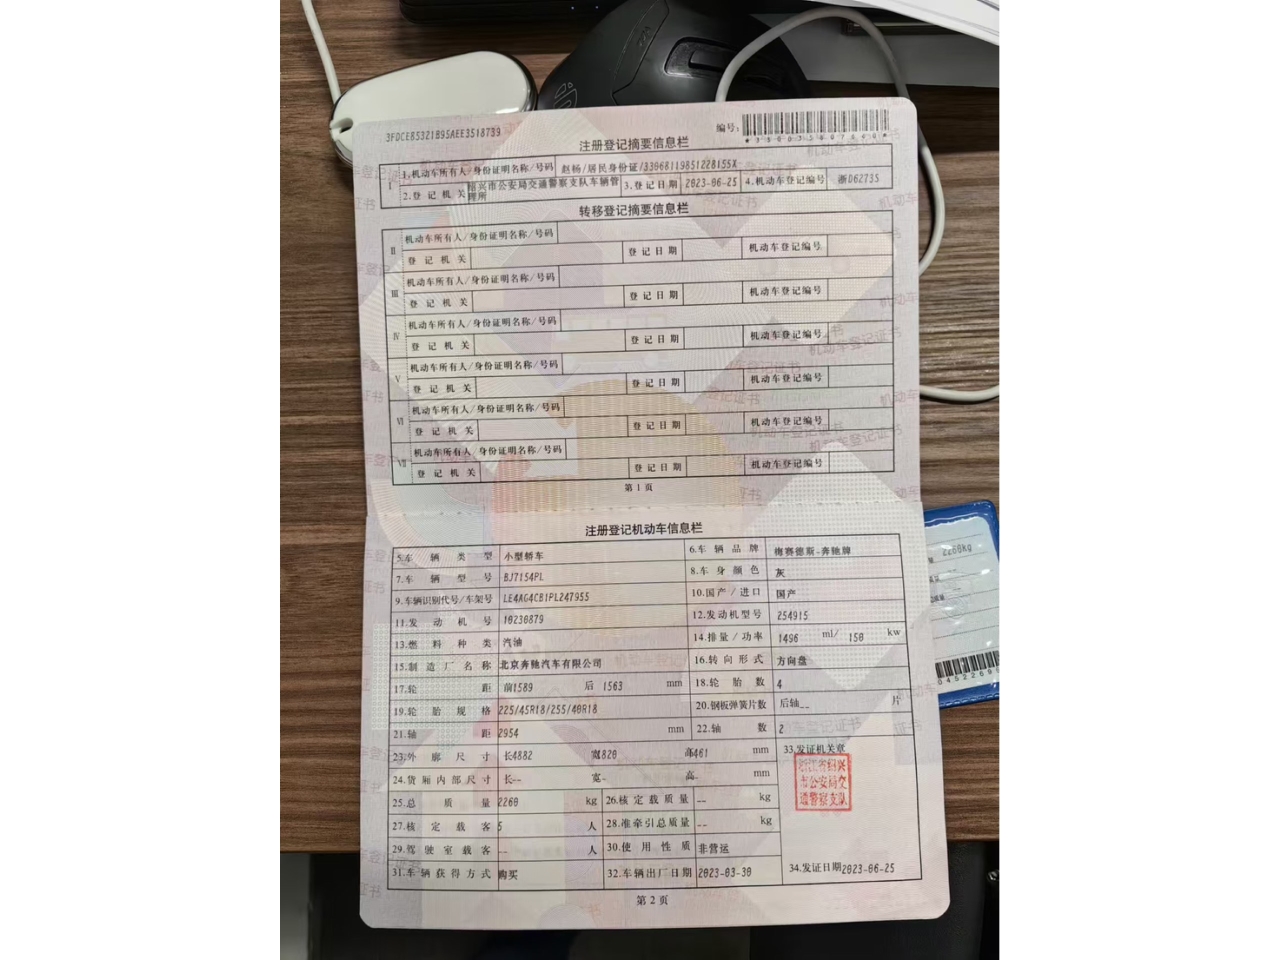 3FDCE85321B95AEE3518739
编号:
注册登记摘要信息栏
I 1.机动车所有人/身份证明名称/号码 赵杨/居民身份证/33068119851228155X
2.登记机关 绍兴市公安局交通警察支队车辆管理所 3.登记日期 2023-06-25 4.机动车登记编号 浙D62735
转移登记摘要信息栏
II 机动车所有人/身份证明名称/号码
登记机关 登记日期 机动车登记编号
III 机动车所有人/身份证明名称/号码
登记机关 登记日期 机动车登记编号
IV 机动车所有人/身份证明名称/号码
登记机关 登记日期 机动车登记编号
V 机动车所有人/身份证明名称/号码
登记机关 登记日期 机动车登记编号
VI 机动车所有人/身份证明名称/号码
登记机关 登记日期 机动车登记编号
VII 机动车所有人/身份证明名称/号码
登记机关 登记日期 机动车登记编号
第1页
注册登记机动车信息栏
5.车辆类型 小型轿车 6.车辆品牌 梅赛德斯-奔驰牌
7.车辆型号 BJ7154PL 8.车身颜色 灰
9.车辆识别代号/车架号 LE4AG4CB1PL247955 10.国产/进口 国产
11.发动机号 10230879 12.发动机型号 254915
13.燃料种类 汽油 14.排量/功率 1496 ml/ 150 kw
15.制造厂名称 北京奔驰汽车有限公司 16.转向形式 方向盘
17.轮距 前1589 后1563 mm 18.轮胎数 4
19.轮胎规格 225/45R18/255/40R18 20.钢板弹簧片数 后轴-- 片
21.轴距 2954 mm 22.轴数 2
23.外廓尺寸 长4882 宽820 高461 mm 33.发证机关章
24.货厢内部尺寸 长-- 宽- 高- mm
浙江省绍兴
市公安局交
通警察支队
25.总质量 2260 kg 26.核定载质量 -- kg
27.核定载客 5 人 28.准牵引总质量 -- kg
29.驾驶室载客 -- 人 30.使用性质 非营运
31.车辆获得方式 购买 32.车辆出厂日期 2023-03-30 34.发证日期 2023-06-25
第2页
2260kg